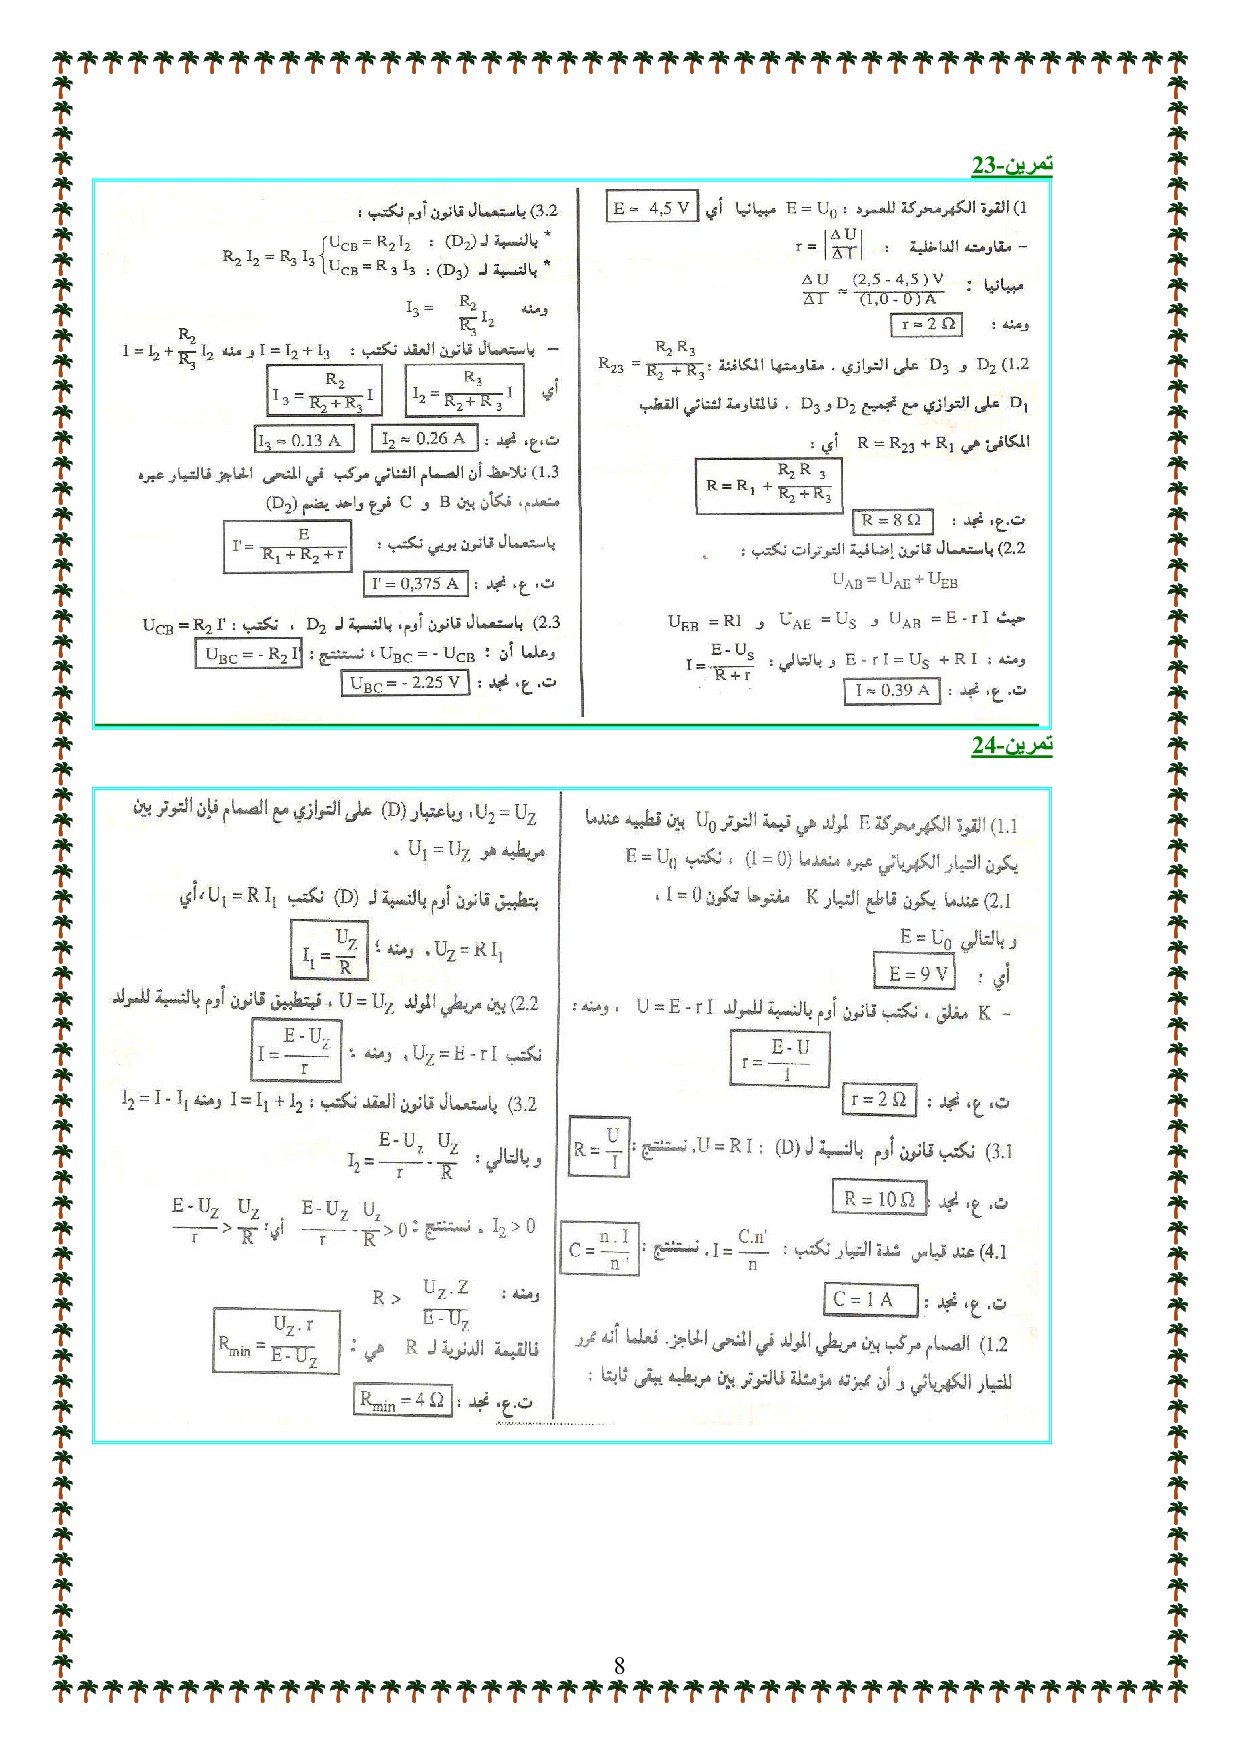 تمرين-23
1) القوة الكهرمحركة للعمود : E = U0 مبيانيا أي E ≈ 4,5 V
– مقاومته الداخلية : r = |ΔU/ΔI|
مبيانيا : ΔU/ΔI ≈ (2,5 - 4,5) V/(1,0 - 0) A
ومنه : r ≈ 2 Ω
1.2) D2 و D3 على التوازي . مقاومتها المكافئة : R23 = R2 R3/(R2 + R3)
D1 على التوازي مع تجميع D2 و D3 . فالمقاومة لثنائي القطب
المكافئ هي R = R23 + R1 أي :
R = R1 + R2 R3/(R2 + R3)
ت.ع، نجد : R = 8 Ω
2.2) باستعمال قانون إضافية التوترات نكتب :
UAB = UAE + UEB
حيث UAB = E - r I و UAE = US و UEB = RI
ومنه : E - r I = US + R I و بالتالي : I = (E - US)/(R + r)
ت.ع، نجد : I ≈ 0.39 A
3.2) باستعمال قانون أوم نكتب :
* بالنسبة لـ (D2) : UCB = R2 I2
* بالنسبة لـ (D3) : UCB = R3 I3 } R2 I2 = R3 I3
ومنه I3 = R2/R3 I2
– باستعمال قانون العقد نكتب : I = I2 + I3 و منه I = I2 + R2/R3 I2
أي I2 = R3/(R2 + R3) I I3 = R2/(R2 + R3) I
ت،ع، نجد : I2 ≈ 0.26 A I3 ≈ 0.13 A
1.3) نلاحظ أن الصمام الثنائي مركب في المنحى الحاجز فالتيار عبره
منعدم، فكأن بين B و C فرع واحد يضم (D2)
باستعمال قانون بويي نكتب : I' = E/(R1 + R2 + r)
ت، ع، نجد : I' = 0,375 A
2.3) باستعمال قانون أوم، بالنسبة لـ D2 ، نكتب : UCB = R2 I'
وعلما أن : UBC = - UCB ، نستنتج : UBC = - R2 I'
ت.ع، نجد : UBC = - 2.25 V
تمرين-24
1.1) القوة الكهرمحركة E لمولد هي قيمة التوتر U0 بين قطبيه عندما
يكون التيار الكهربائي عبره منعدما (I = 0) ، نكتب E = U0
2.1) عندما يكون قاطع التيار K مفتوحا تكون I = 0 ،
و بالتالي E = U0
أي : E = 9 V
– K مغلق ، نكتب قانون أوم بالنسبة للمولد U = E - r I ، ومنه :
r = (E - U)/I
ت، ع، نجد : r = 2 Ω
3.1) نكتب قانون أوم بالنسبة لـ (D) : U = R I، نستنتج : R = U/I
ت.ع، نجد : R = 10 Ω
4.1) عند قياس شدة التيار نكتب : I = C.n'/n ، نستنتج : C = n . I/n'
ت.ع، نجد : C = 1 A
1.2) الصمام مركب بين مربطي المولد في المنحى الحاجز. فعلما أنه ممرر
للتيار الكهربائي و أن مميزته مؤمثلة فالتوتر بين مربطيه يبقى ثابتا :
U2 = UZ، وباعتبار (D) على التوازي مع الصمام فإن التوتر بين
مربطيه هو U1 = UZ ،
بتطبيق قانون أوم بالنسبة لـ (D) نكتب U1 = R I1، أي
UZ = R I1 ، ومنه : I1 = UZ/R
2.2) بين مربطي المولد U = UZ ، فبتطبيق قانون أوم بالنسبة للمولد
نكتب UZ = E - r I ، ومنه : I = (E - UZ)/r
3.2) باستعمال قانون العقد نكتب : I = I1 + I2 ومنه I2 = I - I1
و بالتالي : I2 = (E - UZ)/r - UZ/R
I2 > 0 ، نستنتج : (E - UZ)/r - UZ/R > 0 أي : (E - UZ)/r > UZ/R
ومنه : R > UZ . Z/(E - UZ)
فالقيمة الدنوية لـ R هي : Rmin = UZ . r/(E - UZ)
ت.ع، نجد : Rmin = 4 Ω
8